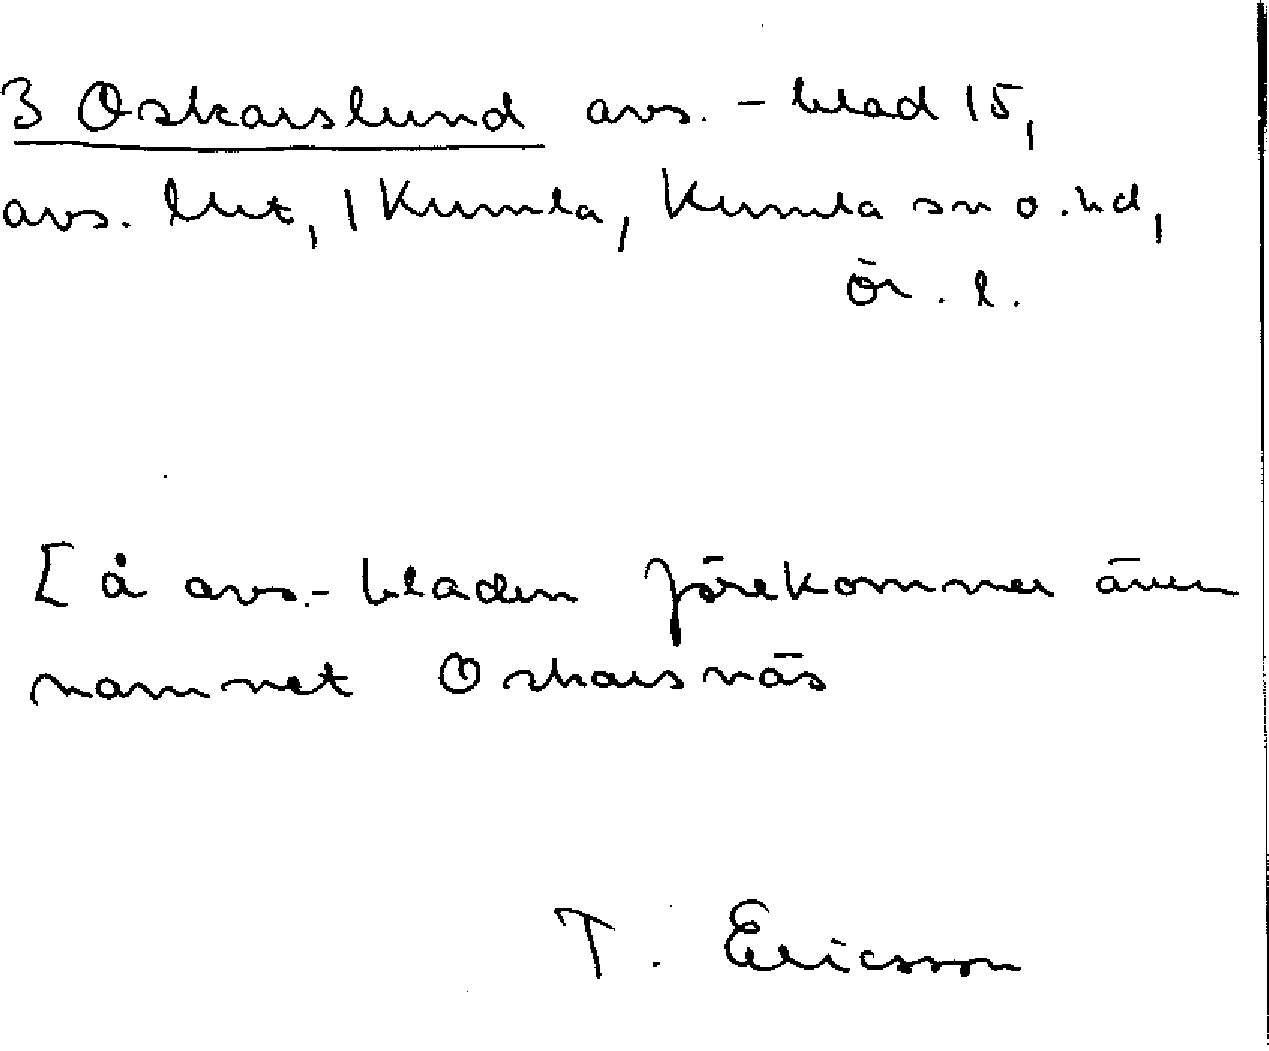 3 Oskarslund avs.-blad 15,
avs. lht, 1 Kumla, Kumla sn o. hd,
Ör. l.
[ å avs.-bladen förekommer även
namnet Oskarsnäs
T. Ericsson